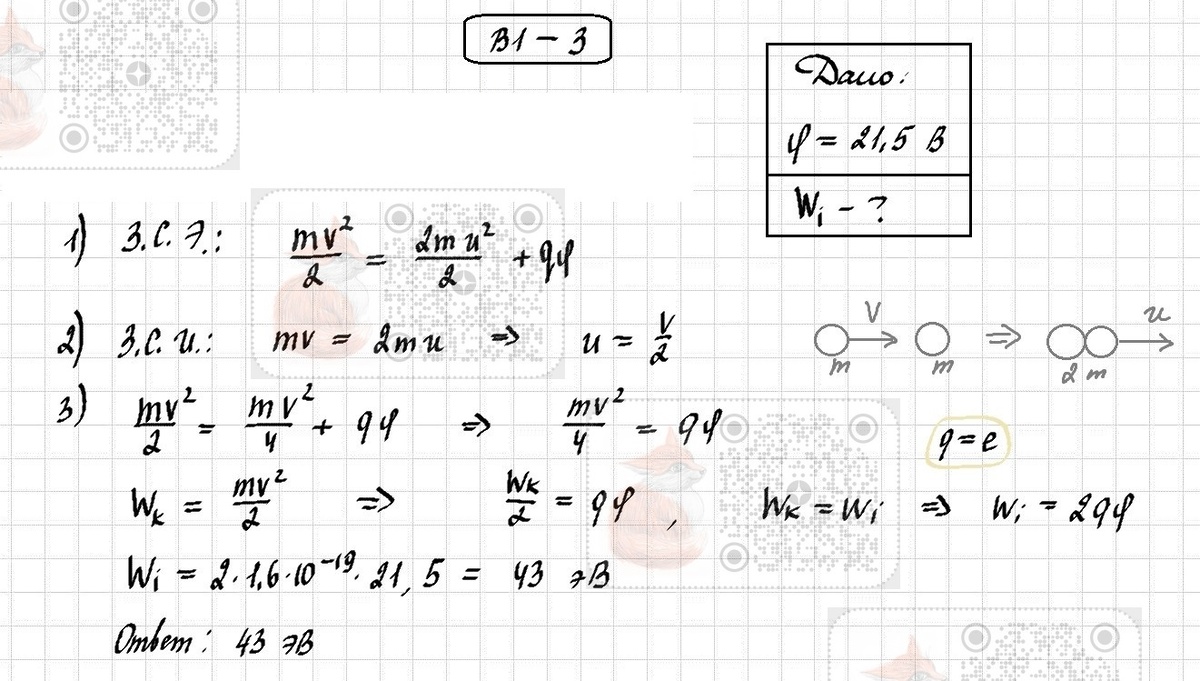 В1 – 3
Дано:
φ = 21,5 В
Wi – ?
1) З.С.Э.: mv²/2 = 2mu²/2 + qφ
2) З.С.И.: mv = 2mu ⇒ u = v/2
V u
m m ⇒ 2m
3) mv²/2 = mv²/4 + qφ ⇒ mv²/4 = qφ
q = e
Wk = mv²/2 ⇒ Wk/2 = qφ, Wk = Wi ⇒ Wi = 2qφ
Wi = 2·1,6·10⁻¹⁹·21,5 = 43 эВ
Ответ: 43 эВ